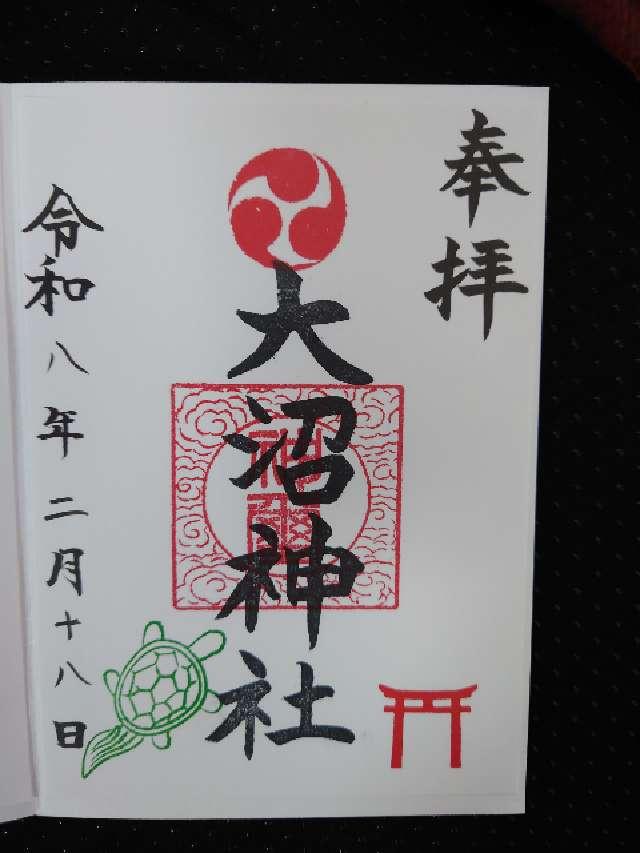 奉拝
大沼神社
令和八年二月十八日